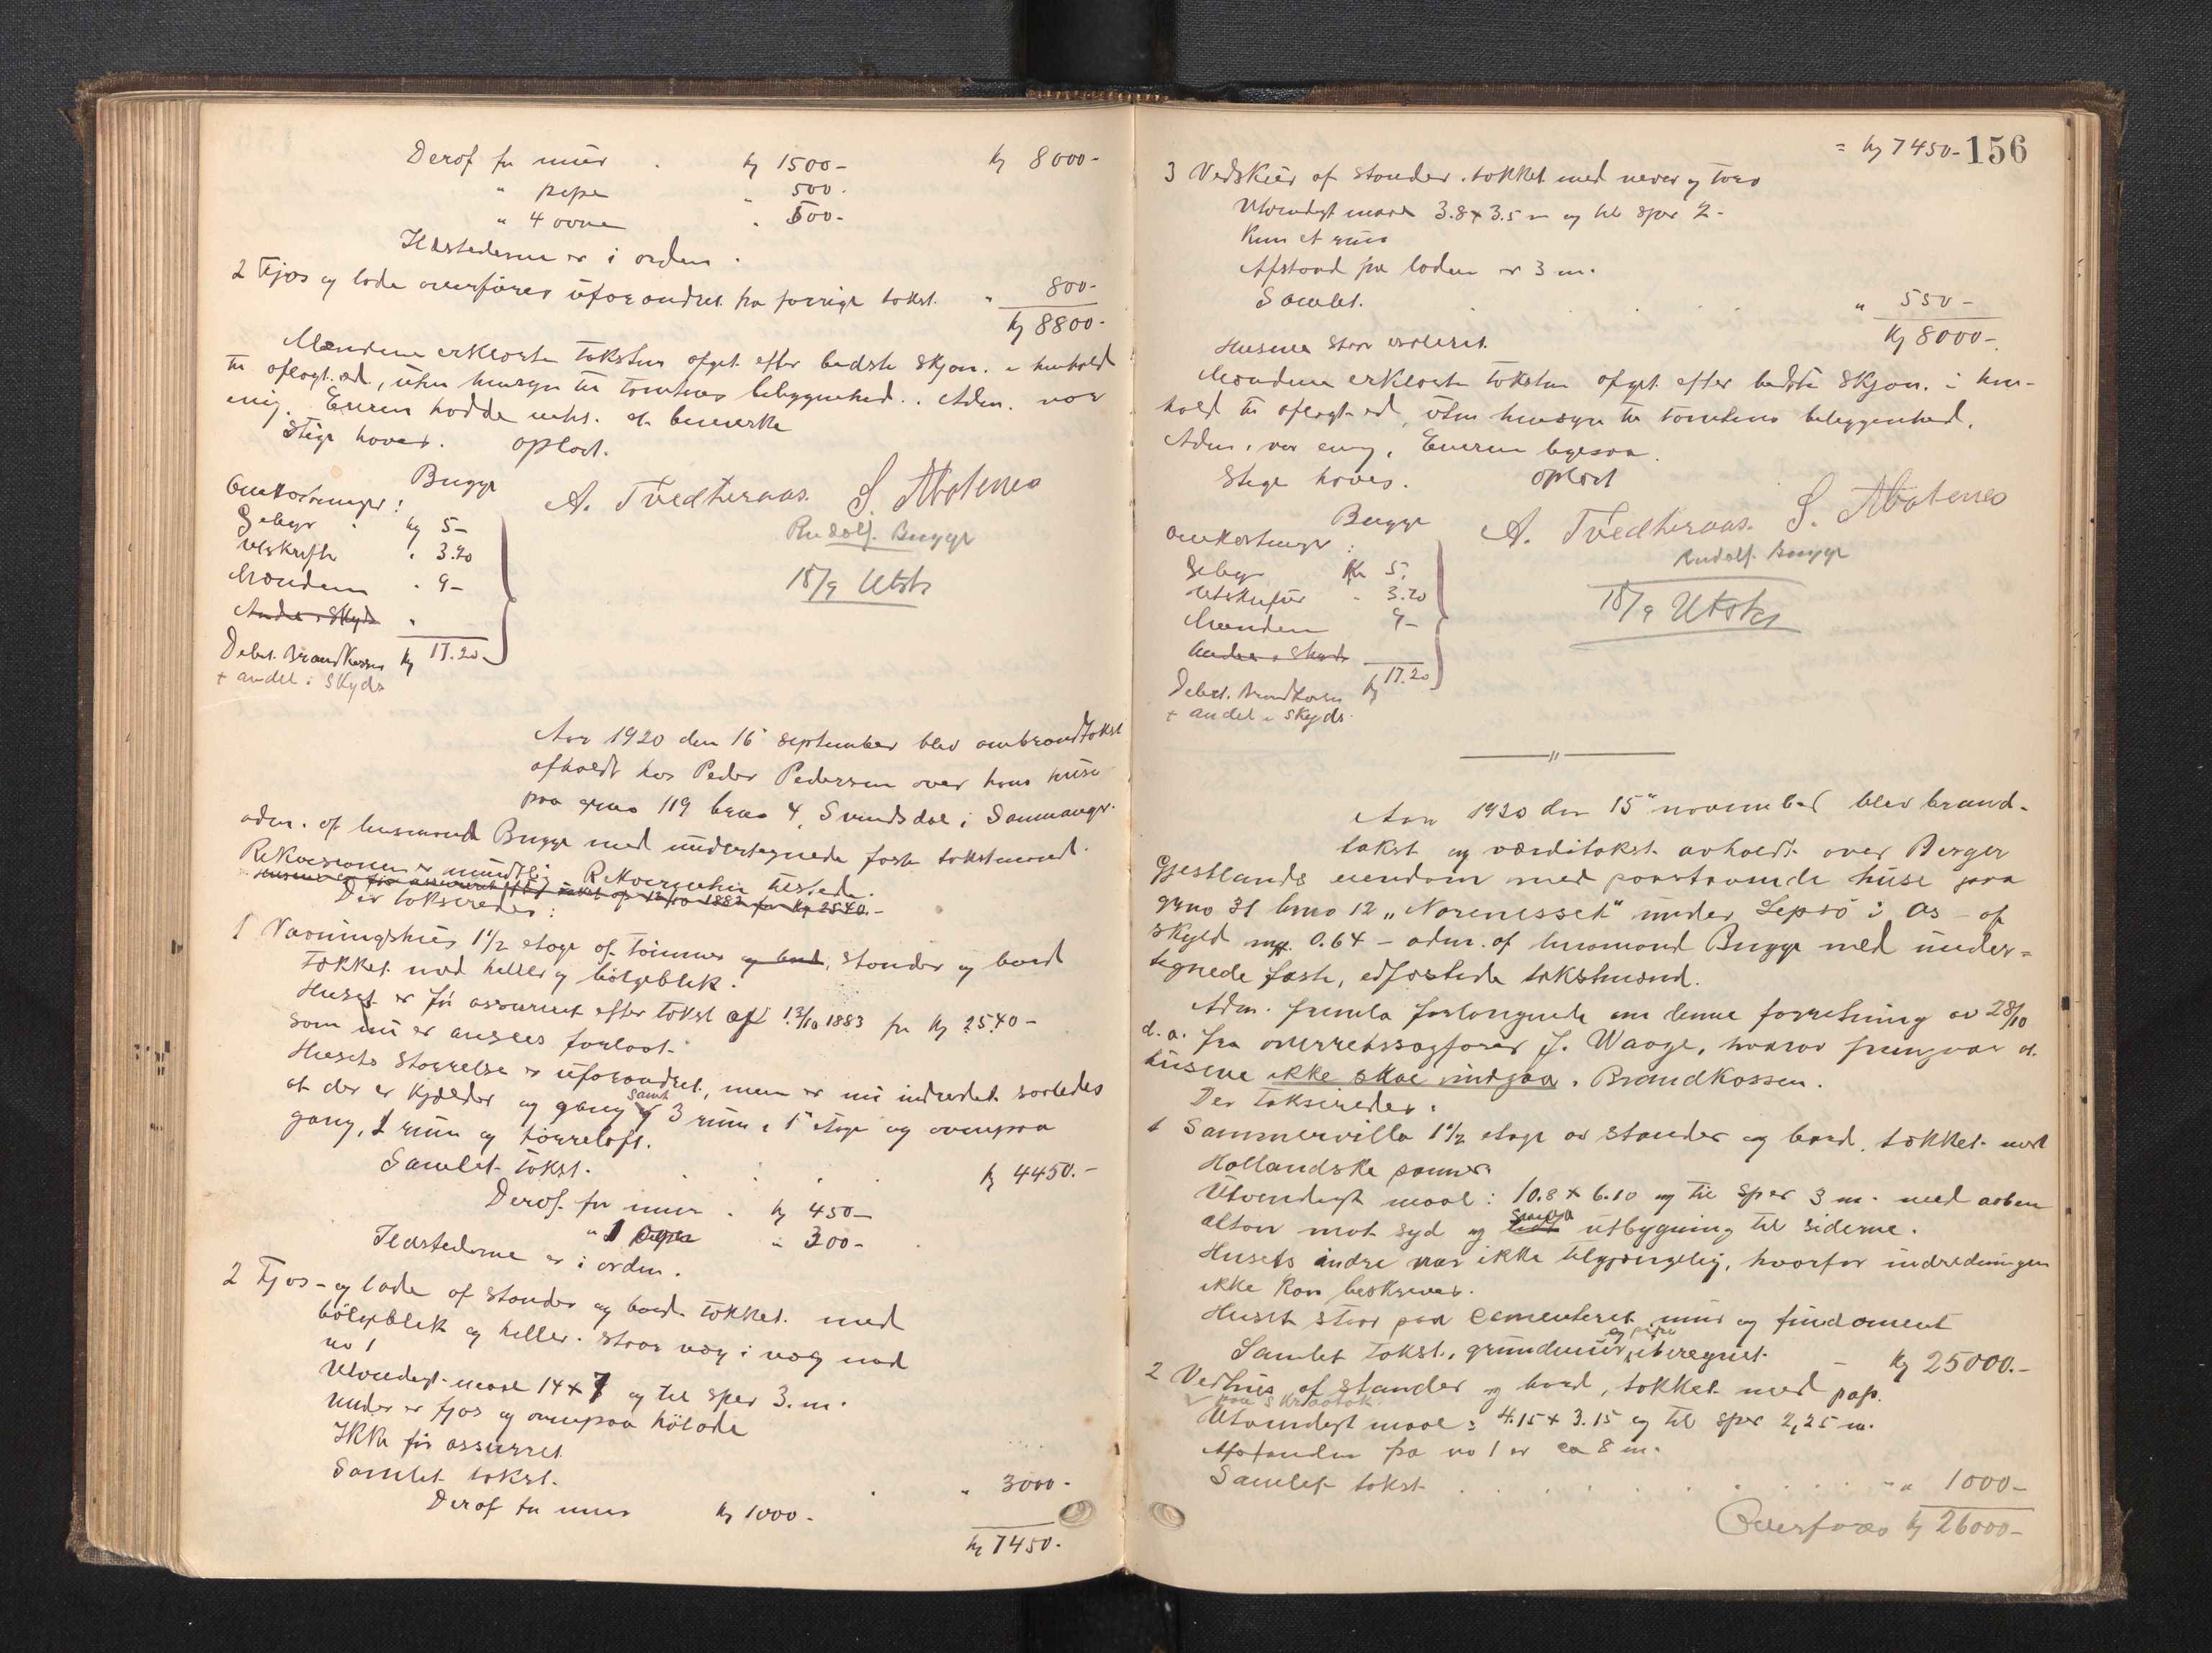 Deraf for mur . kr 1500- kr 8000-
" pipe " 500.
" 4 ovne . 500-
Ildstederne er i orden.
2 Fjøs og lade overføres uforandret fra forrige takst. " 800-
kr 8800-
Mændene erklærte taksten afgit efter bedste skjøn i henhold
til aflagt ed, uten hensyn til tomtens beliggenhed. Adm. var
enig. Eieren hadde intet at bemerke
Stige haves. Oplæst.
Bugge A. Tvedteraas. S. Moldenes
Rudolf Bugge
Omkostninger:
Gebyr . kr 5-
Utskrift . 3.20
Mændene . 9-
Andel i Skyds "
Debet. Brandkassen kr 17.20
+ andel i Skyds
15/9 Utskr
Aar 1920 den 16 september blev ombrandtakst
afholdt hos Peder Pedersen over hans huse
paa grno 119 brno 4, Svendsdal i Samnanger.
adm. af lensmand Bugge med undertegnede faste takstmænd.
Rekvisitionen er mundtlig. Rekvirenten tilstede.
Husene er før assureret efter takst af 13/10 1883 for kr 2540.-
Der takseredes:
1 Vaaningshus 1½ etage af tømmer og bord, stender og bord
tækket med heller og bølgeblik.
Huset er før assureret efter takst af 13/10 1883 for kr 2540-
som nu er ansees forlavt.
Husets størrelse er uforandret, men er nu indredet saaledes
at der er kjelder og gang samt 3 rum i 1 etage og ovenpaa
gang, 1 rum og tørreloft.
Samlet takst. . . . kr 4450.-
Deraf for mur . kr 450-
" 1 pipe " 300-
Ildstederne er i orden.
2 Fjøs- og lade af stender og bord tækket med
bølgeblik og heller. Staar væg i væg med
no 1
Utvendigt maal 14 x 7 og til sper 3. m.
Under er fjøs og ovenpaa høilade
Ikke før assureret
Samlet takst. . " 3000-
Deraf for mur kr 1000-
kr 7450.
= kr 7450- 156
3 Vedskur af stender. tækket med never og torv
Utvendigt maal 3.8 x 3.5 m og til sper 2-
Kun et rum
Afstand fra laden er 3 m.
Samlet. . . . " 550-
kr 8000-
Husene staar isoleret.
Mændene erklærte taksten afgit efter bedste skjøn i hen-
hold til aflagt ed, uten hensyn til tomtens beliggenhed.
Adm. var enig, Eieren ligesaa.
Stige haves. Oplæst
Bugge A. Tvedteraas. S. Moldenes
Rudolf Bugge
Omkostninger:
Gebyr Kr 5.
Utskrifter - 3.20
Mændene 9-
Andel i Skyds
Debet. Brandkassen kr 17.20
+ andel i Skyds.
15/9 Utskr
Aar 1920 den 15 november blev brand-
takst og værditakst avholdt over Berger
Gjestlands eiendom med paastaaende huse paa
grno 31 brno 12 „Norenesset" under Lepsø i Os - af
skyld mk. 0.64 - adm. af lensmand Bugge med under=
tegnede faste, edfæstede takstmænd.
Adm. fremla forlangende om denne forretning av 28/10
d.a. fra overretssagfører J. Waage, hvorav fremgaar at
husene ikke skal indgaa i Brandkassen.
Der takseredes.
1 Sommervilla 1½ etage av stender og bord, tækket med
Hollandske panner.
Utvendigt maal: 10.8 x 6.10 og til sper 3 m. med aaben
altan mot syd og smaa utbygning til siderne.
Husets indre var ikke tilgjængelig, hvorfor indredningen
ikke kan beskrives.
Huset staar paa Cementeret mur og fundament
Samlet takst, grundmur og pipe iberegnet. - kr 25000.-
2 Vedhus af stender og bord, tækket med pap.
paa skraatak
Utvendigt maal: 4.15 x 3.15 og til sper 2,25 m.
Afstanden fra no 1 er ca 8 m.
Samlet takst . . . . " 1000-
Overføres kr 26000-